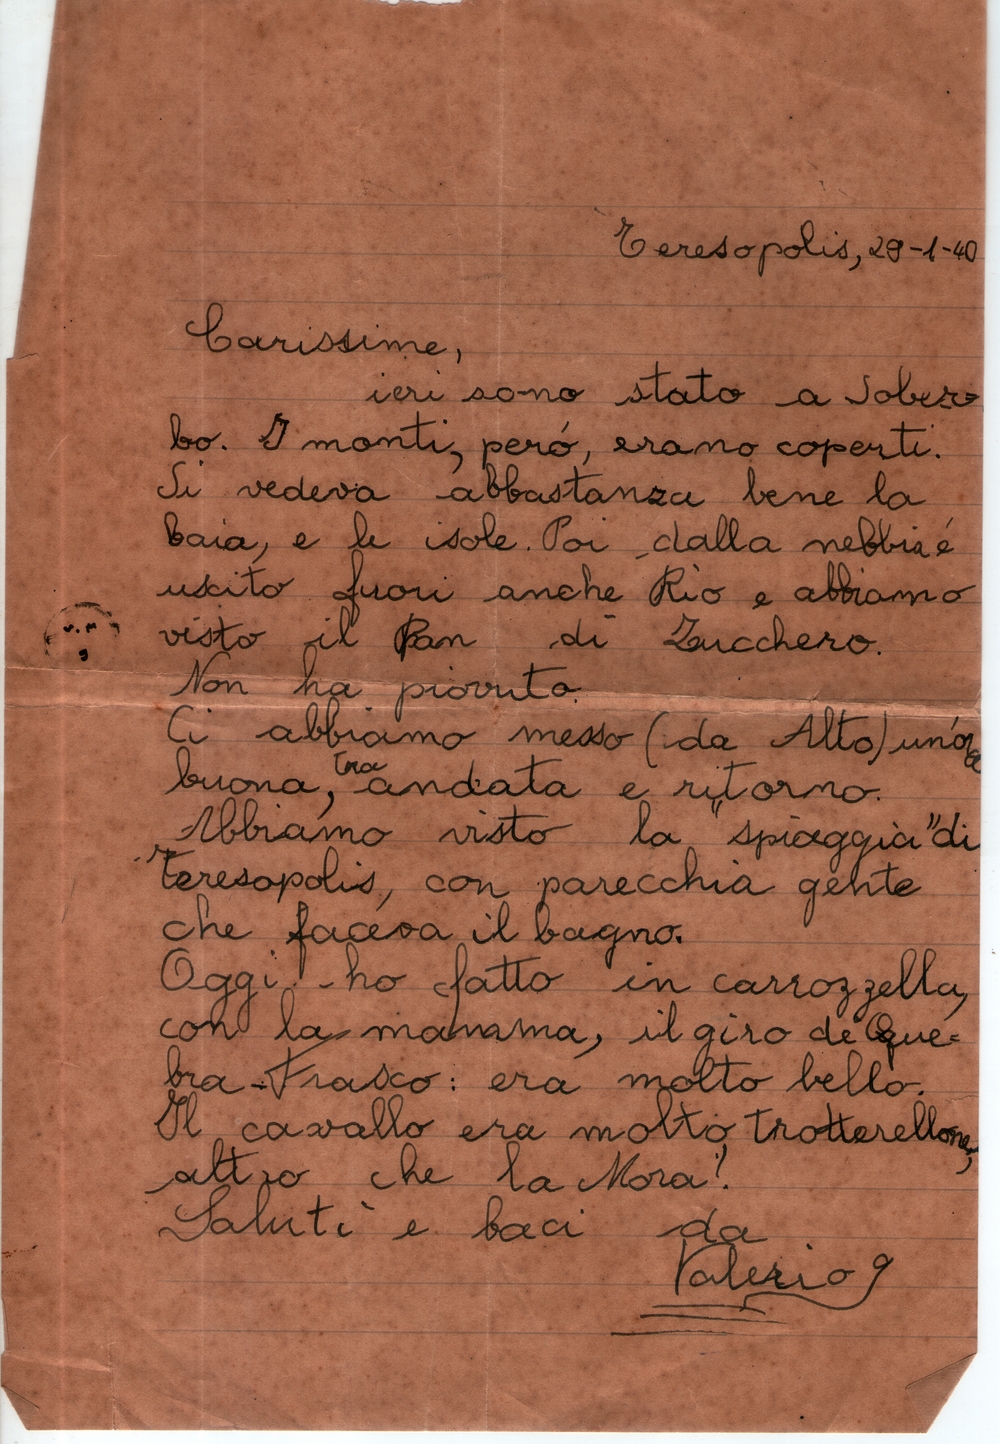 Teresopolis, 29-1-40
Carissime,
ieri sono stato a Sober=
bo. I monti, peró, erano coperti.
Si vedeva abbastanza bene la
baia, e le isole. Poi dalla nebbia é
uscito fuori anche Rio e abbiamo
visto il Pan di Zucchero.
Non ha piovuto.
Ci abbiamo messo (da Alto) un'ora
buona, tra andata e ritorno.
Abbiamo visto la "spiaggia" di
Teresopolis, con parecchia gente
che faceva il bagno.
Oggi ho fatto in carrozzella,
con la mamma, il giro de Que=
bra-Frasco: era molto bello.
Il cavallo era molto trotterellone,
altro che la Mora!
Saluti e baci da
Valerio